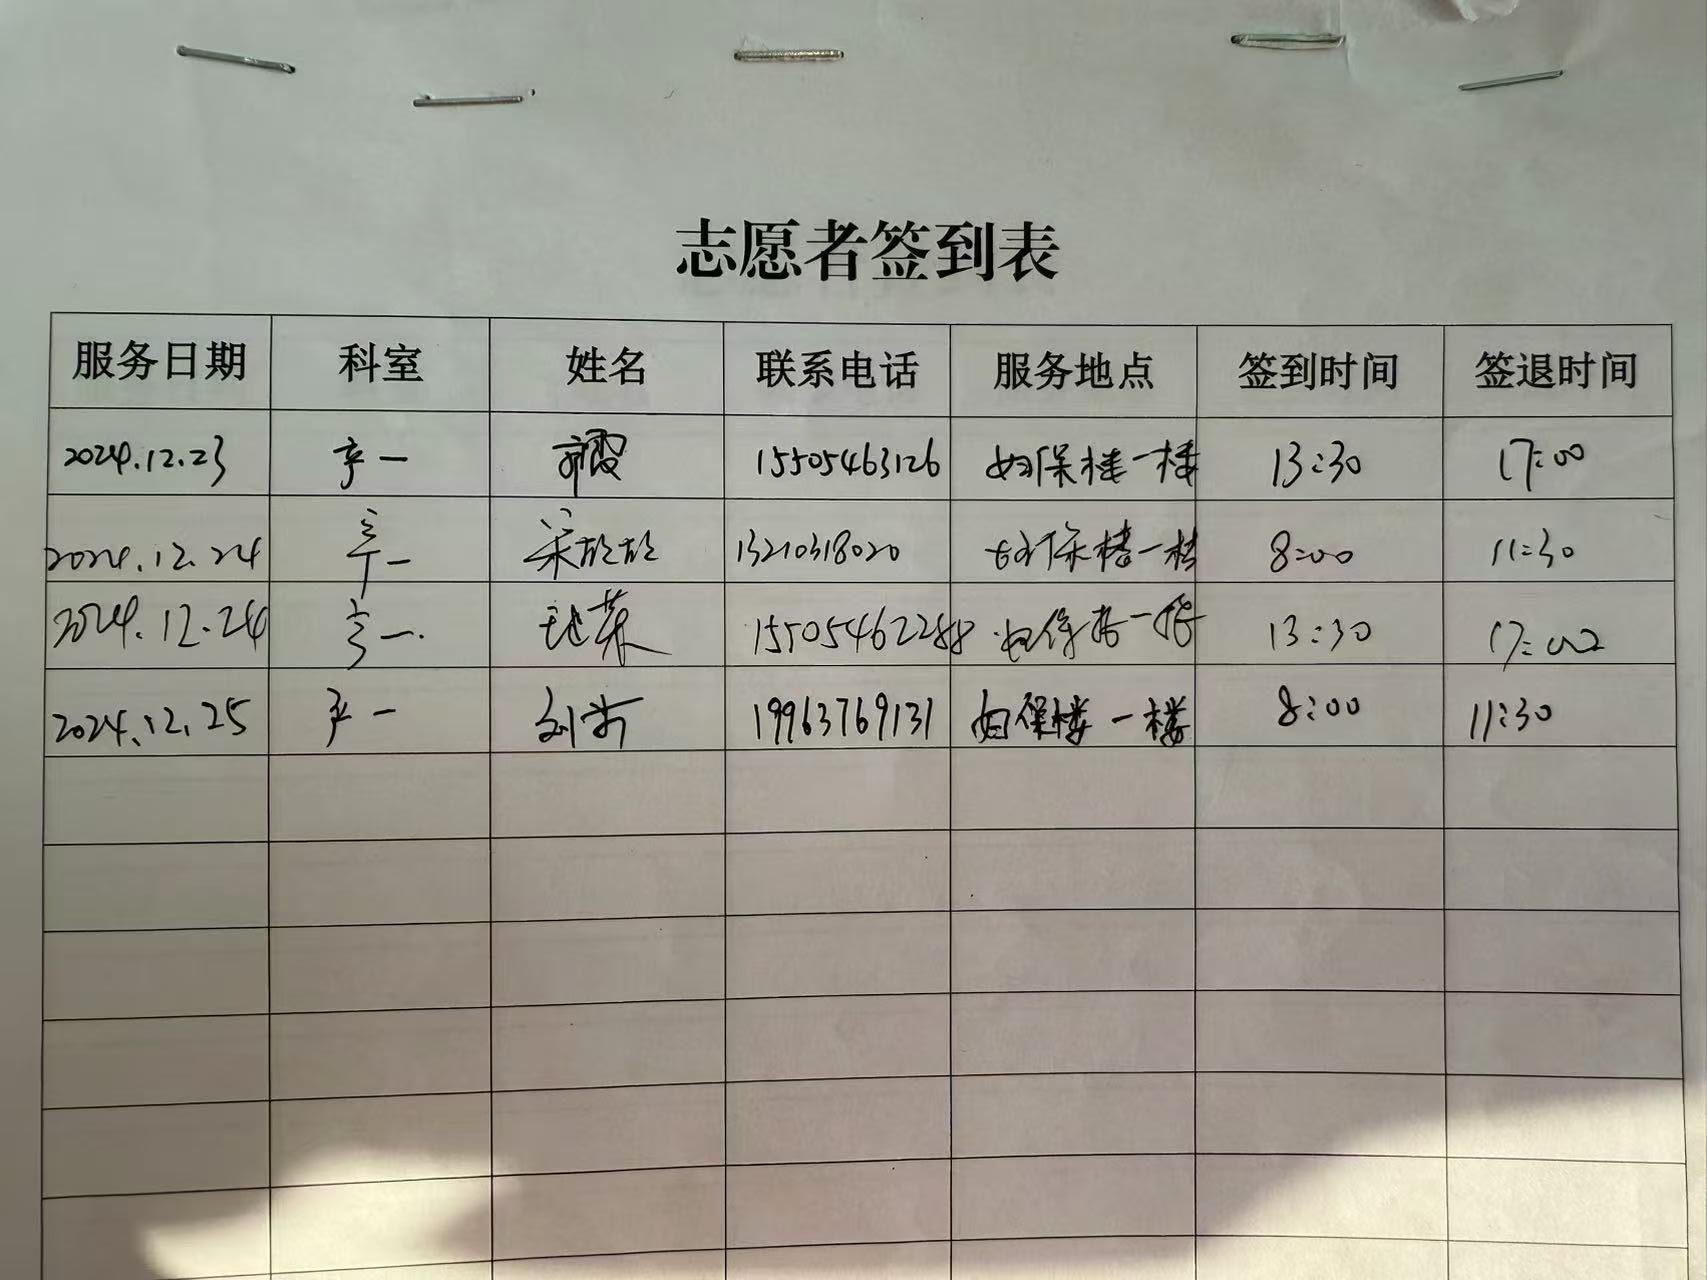 志愿者签到表
服务日期 科室 姓名 联系电话 服务地点 签到时间 签退时间
2024.12.23 产一 15505463126 妇保楼一楼 13:30 17:00
2024.12.24 产一 宋欣欣 13210318020 妇保楼一楼 8:00 11:30
2024.12.24 产一. 15505462288 妇保楼一楼 13:30 17:00
2024.12.25 产一 19963769131 妇保楼一楼 8:00 11:30